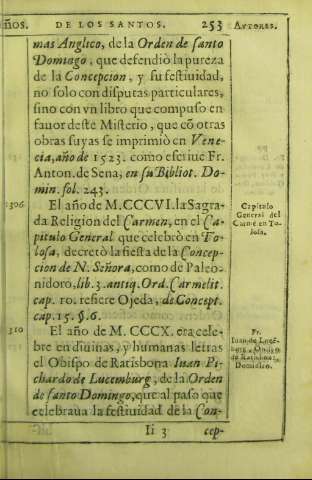 ños. DE LOS SANTOS. 253 AUTORES.
mas Anglico, de la Orden de santo
Domingo, que defendiò la pureza
de la Concepcion, y su festiuidad,
no solo con disputas particulares,
sino con vn libro que compuso en
fauor deste Misterio, que cõ otras
obras suyas se imprimiò en Vene
cia, año de 1523. como escriue Fr.
Anton. de Sena, en su Bibliot. Do-
min. fol. 243.
1306 El año de M.CCCVI. la Sagra-
da Religion del Carmen, en el Ca-
pitulo General que celebrò en To-
losa, decretò la fiesta de la Concep-
cion de N. Señora, como de Paleo-
nidoro, lib. 3. antiq. Ord. Carmelit.
cap. 10. refiere Ojeda, de Concept.
cap. 15. §. 6.
Capitulo
General del
Carmē en To-
losa.
310 El año de M. CCCX. era cele-
bre en diuinas, y humanas letras
el Obispo de Ratisbona Iuan Pi-
chardo de Lucemburg, de la Orden
de santo Domingo, que al paso que
celebraua la festiuidad de la Con-
Fr.
Iuan de Lucē-
burg, Obispo
de Ratisbona,
Dominico.
Ii 3 cep-